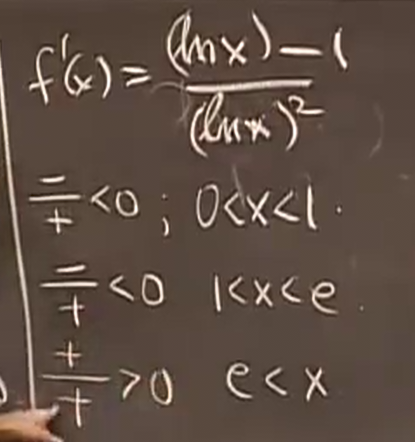 f'(x) = (ln x) - 1 / (ln x)²
-/+ < 0 ; 0 < x < 1.
-/+ < 0 1 < x < e.
+/+ > 0 e < x